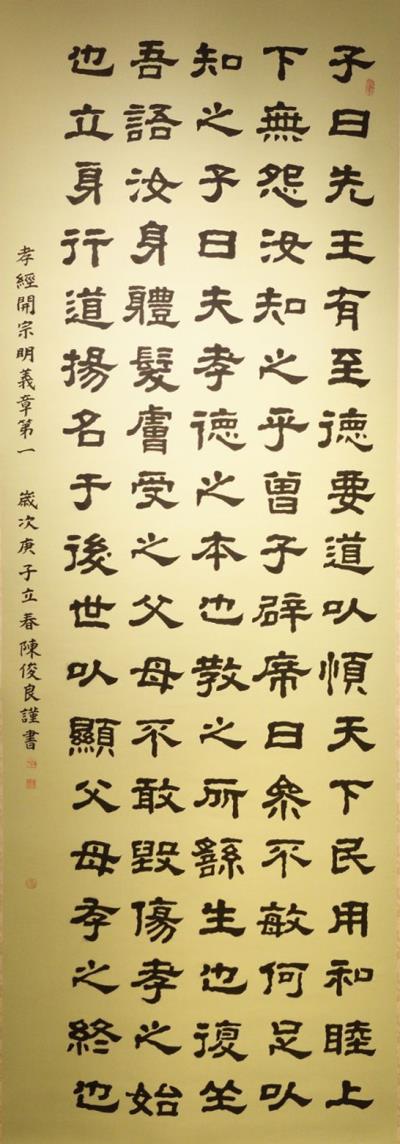 子曰先王有至德要道以順天下民用和睦上
下無怨汝知之乎曾子辟席曰參不敏何足以
知之子曰夫孝德之本也教之所繇生也復坐
吾語汝身體髮膚受之父母不敢毀傷孝之始
也立身行道揚名于後世以顯父母孝之終也
孝經開宗明義章第一 歲次庚子立春陳俊良謹書